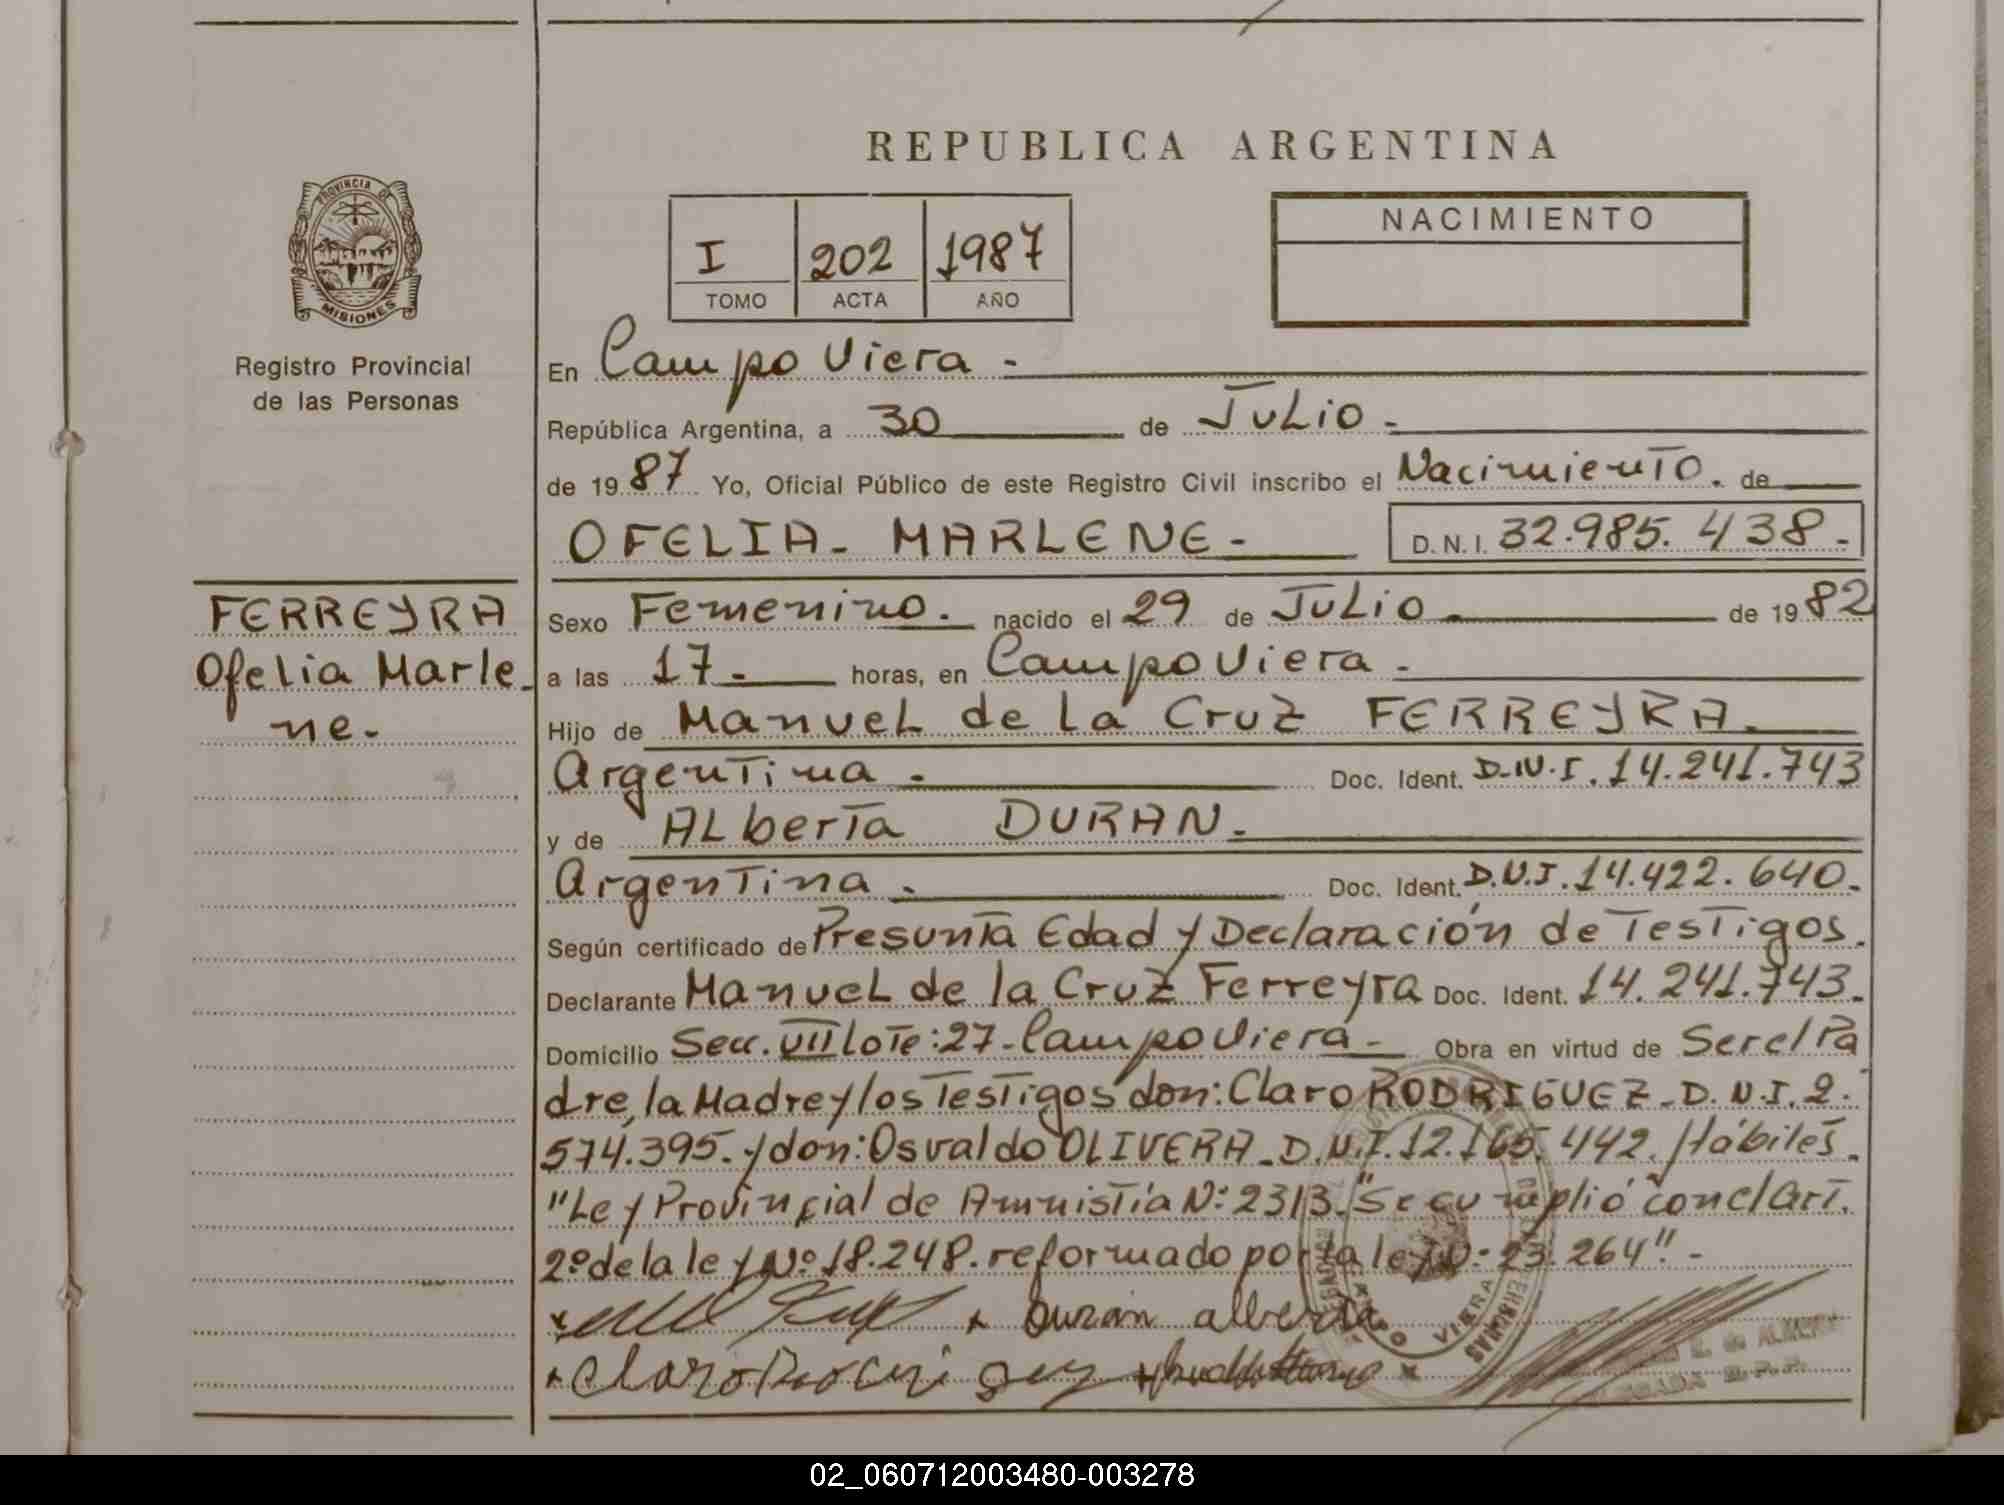 REPUBLICA ARGENTINA
PROVINCIA DE
MISIONES
Registro Provincial
de las Personas
I 202 1987
TOMO ACTA AÑO
NACIMIENTO
En Campo Viera -
República Argentina, a 30 de JuLio -
de 1987 Yo, Oficial Público de este Registro Civil inscribo el Nacimiento. de
OFELIA - MARLENE - D.N.I. 32.985.438.-
FERREYRA
Ofelia Marle_
ne.
Sexo Femenino. nacido el 29 de JuLio - de 1982
a las 17 - horas, en Campo Viera -
Hijo de ManueL de La Cruz FERREYRA.
Argentina - Doc. Ident. D.N.I. 14.241.743
y de ALberta DURAN -
Argentina - Doc. Ident. D.N.I. 14.422.640.-
Según certificado de Presunta Edad y Declaración de Testigos.
Declarante ManueL de la Cruz Ferreyra Doc. Ident. 14.241.743.-
Domicilio Secc. VII Lote: 27 - Campo Viera - Obra en virtud de Ser el Pa
dre, la Madre y los Testigos don: Claro RODRIGUEZ - D.N.I. 2.
574.395. y don: Osvaldo OLIVERA - D.N.I. 12.165.442. Hábiles -
"Ley Provincial de Amnistía N: 2313." Se cumplió con el Art.
2º de la ley Nº 18.248. reformado por la ley N: 23.264". -
Duran alberta
Claro Rodriguez
CAMPO VIERA
MISIONES
02_060712003480-003278